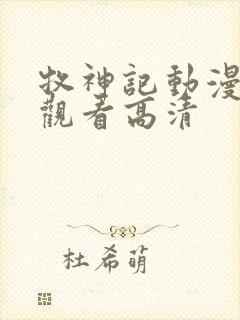 牧神記動漫
觀看高清
杜希萌